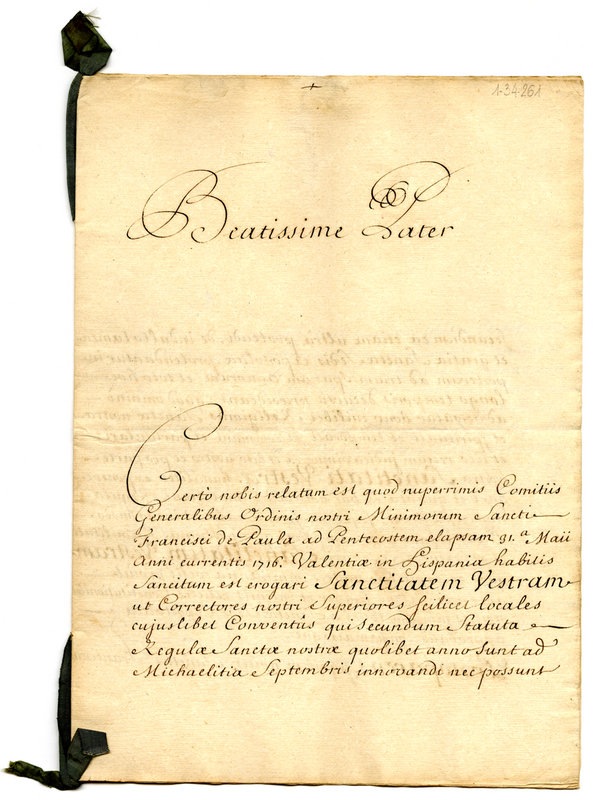 +
1-34-261
Beatissime Pater
Certo nobis relatum est quod nuperrimis Comitiis
Generalibus Ordinis nostri Minimorum Sancti
Francisci de Paula ad Pentecostem elapsam 31.a Maii
Anni currentis 1716. Valentiæ in Hispania habitis
Sancitum est erogari Sanctitatem Vestram
ut Correctores nostri Superiores scilicet locales
cujuslibet Conventûs qui secundum Statuta
Regulæ Sanctæ nostræ quolibet anno sunt ad
Michaelitia Septembris innovandi nec possunt